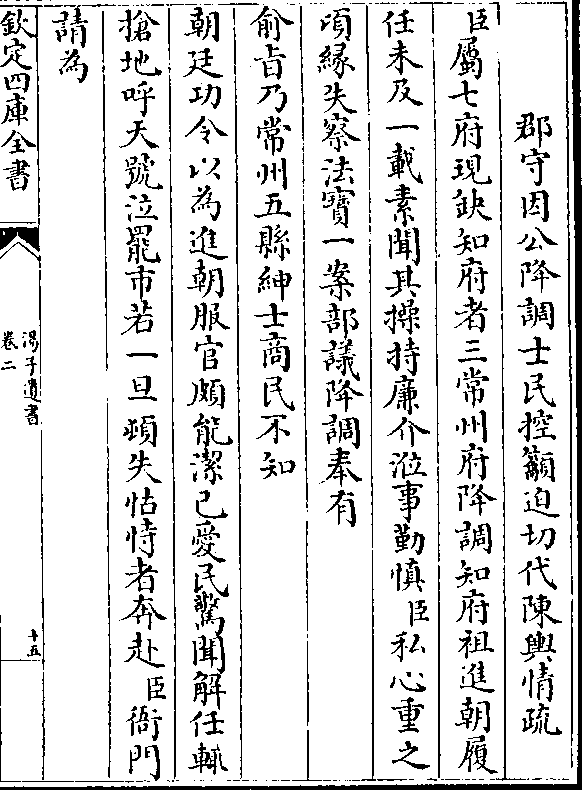 郡守因公降調士民控籲迫切代陳輿情疏
臣屬七府現缺知府者三常州府降調知府祖進朝履
任未及一載素聞其操持廉介涖事勤慎臣私心重之
頃緣失察法寶一案部議降調奉有
俞旨乃常州五縣紳士商民不知
朝廷功令以為進朝服官頗能潔己愛民驚聞解任輒
搶地呼天號泣罷市若一旦頓失怙恃者奔赴臣衙門
請為
欽定四庫全書
湯子遺書
卷二
十五